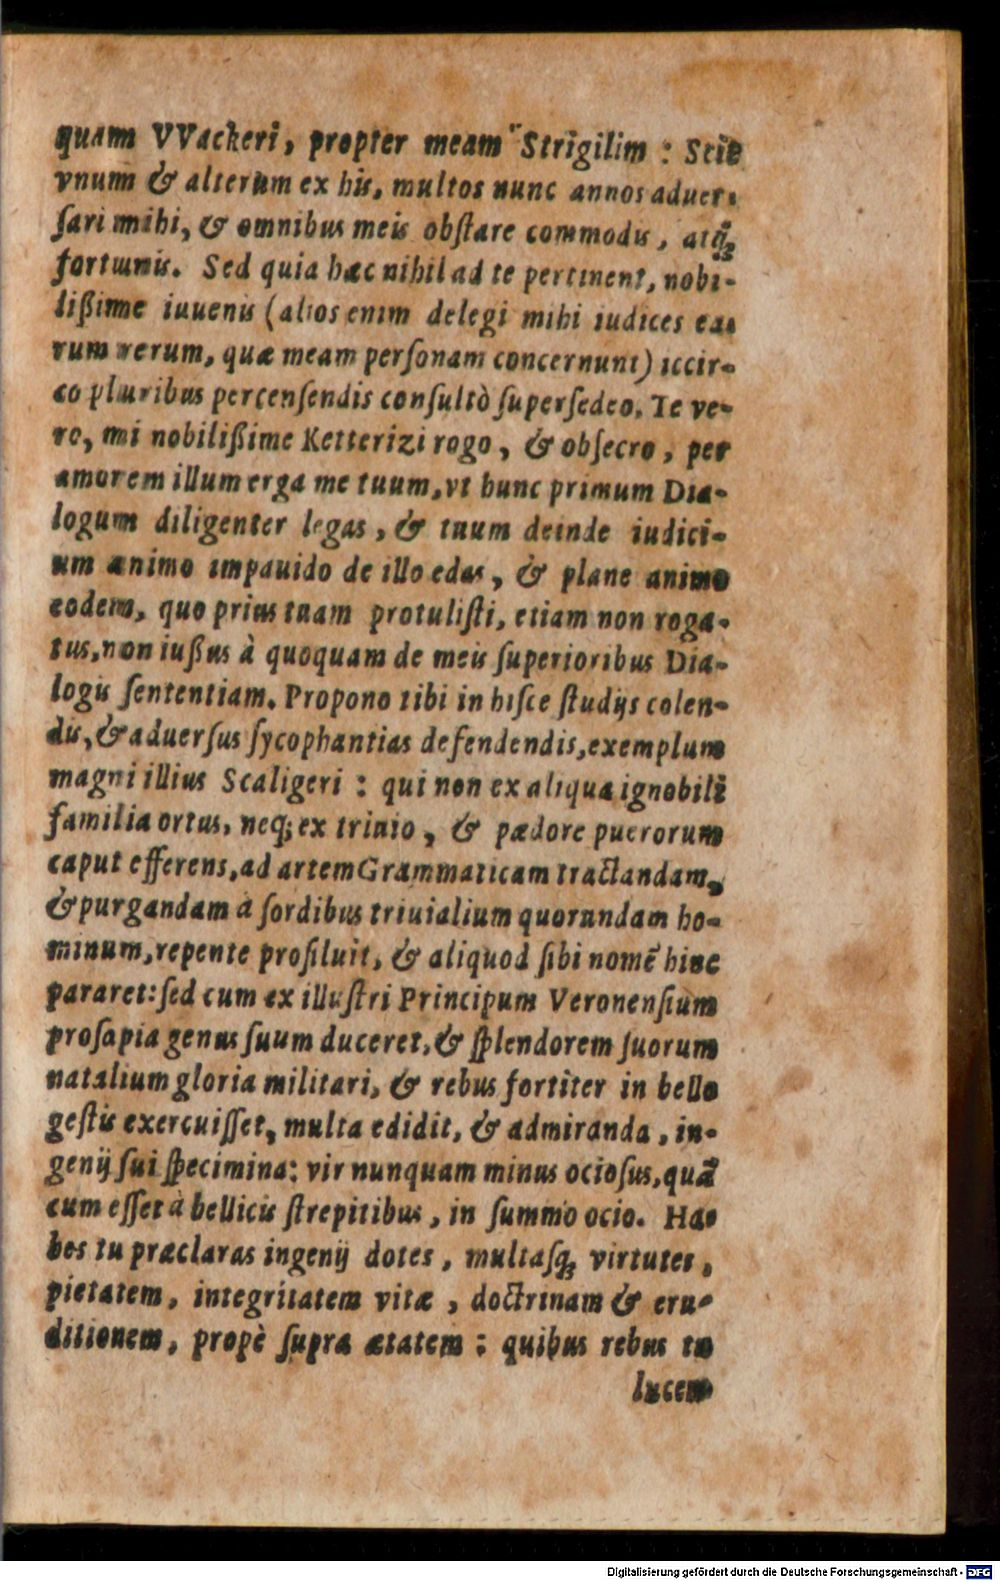 quam VVackeri, propter meam Strigilim : Scit
vnum & alterum ex his, multos nunc annos aduer-
ſari mihi, & omnibus meis obſtare commodis, atq́;
fortunis. Sed quia hæc nihil ad te pertinent, nobi-
lißime iuuenis (alios enim delegi mihi iudices ea-
rum rerum, quæ meam perſonam concernunt) iccir-
co pluribus percenſendis conſultò ſuperſedeo. Te ve-
ro, mi nobilißime Ketterizi rogo, & obſecro, per
amorem illum erga me tuum, vt hunc primum Dia-
logum diligenter legas, & tuum deinde iudici-
um animo impauido de illo edas, & plane animo
eodem, quo prius tuam protuliſti, etiam non roga-
tus, non iußus à quoquam de meis ſuperioribus Dia-
logis ſententiam. Propono tibi in hiſce ſtudijs colen-
dis, & aduerſus ſycophantias defendendis, exemplum
magni illius Scaligeri : qui non ex aliqua ignobili
familia ortus, neq; ex triuio, & pædore puerorum
caput efferens, ad artem Grammaticam tractandam,
& purgandam à ſordibus triuialium quorundam ho-
minum, repente proſiluit, & aliquod ſibi nomē hinc
pararet: ſed cum ex illuſtri Principum Veronenſium
proſapia genus ſuum duceret, & ſplendorem ſuorum
natalium gloria militari, & rebus fortiter in bello
geſtis exercuiſſet, multa edidit, & admiranda, in-
genij ſui ſpecimina: vir nunquam minus ocioſus, quā
cum eſſet à bellicis ſtrepitibus, in ſummo ocio. Ha-
bes tu præclaras ingenij dotes, multaſq; virtutes,
pietatem, integritatem vitæ, doctrinam & eru-
ditionem, propè ſupra ætatem : quibus rebus tu
lucem
Digitalisierung gefördert durch die Deutsche Forschungsgemeinschaft - DFG